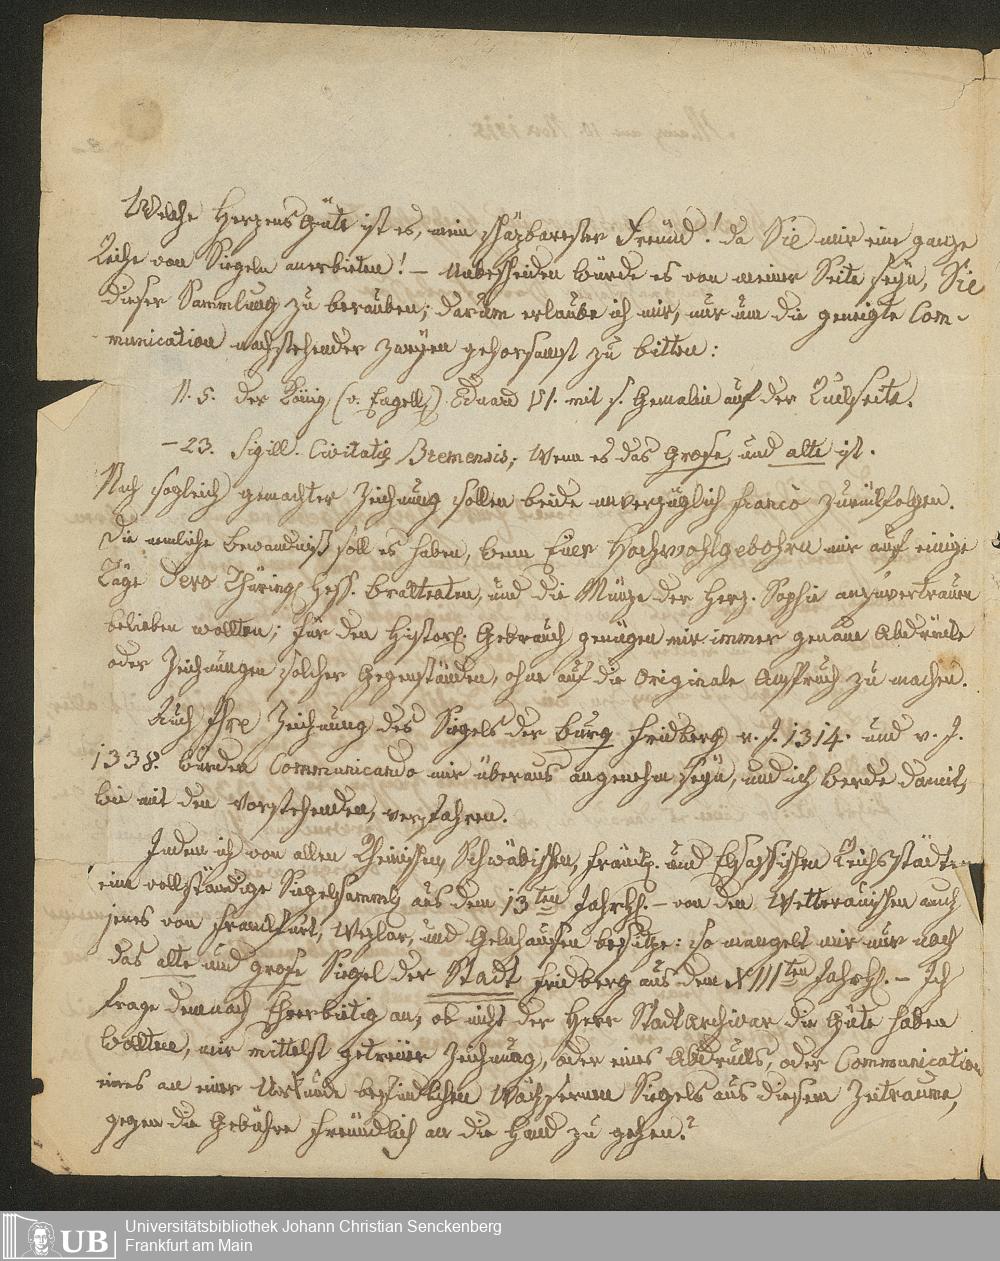 Welche Herzens Güte ist es, mein schäzbarester Freünd! da Sie mir eine ganze
Reihe von Siegeln anerbieten! – Unbescheiden würde es von meiner Seite seyn, Sie
dieser Sammlung zu berauben; darum erlaube ich mir, nur um die geneigte Com-
munication nachstehender zweyen gehorsamst zu bitten:
N. 5. der König (v. Engell.) Eduard VI. mit s. Gemalin auf der Rückseite.
– 23. Sigill. Civitatis Bremensis; wenn es das Grose und alte ist.
Nach sogleich gemachter Zeichnung sollen beide unverzüglich franco zurückfolgen.
Die nemliche bewandniß soll es haben, wenn Euer Hochwohlgebohrn mir auf einige
Täge Dero Thüring. Hess. bratteaten, und die Münze der Herz. Sophie anzuvertrauen
belieben wollten; für den Historisch. Gebrauch genügen mir immer genaue Abdrücke
oder Zeichnungen solcher Gegenständen, ohne auf die Originale Anspruch zu machen.
Auch Ihre Zeichnung des Siegels der burg Fridberg v. J. 1314. und v. J.
1338. würden Communicando mir überaus angenehm seyn, und ich werde damit,
wie mit den vorstehenden, verfahren.
Indem ich von allen Rheinischen, Schwäbischen, Fränk. und Elsassischen Reichsstädten
eine vollständige Siegelsamml. aus dem 13ten Jahrhh. – von den Wetterauischen auch
jenes von Frankfurt, Wezlar, und Gelnhausen besitze: so mangelt mir nur noch
das alte und grose Siegel der Stadt Fridberg aus dem XIIIten Jahrhh. – Ich
frage demnach Ehrerbietig an, ob nicht der Herr Stadt Archivar die Güte haben
wollten, mir mittelst getreüer Zeichnung, oder eines Abdrucks, oder Communication
eines an einer Urkunde befindlichen Wächsernen Siegels aus diesem Zeitraume,
gegen die Gebühre freündlich an die Hand zu gehen?
UB
Universitätsbibliothek Johann Christian Senckenberg
Frankfurt am Main